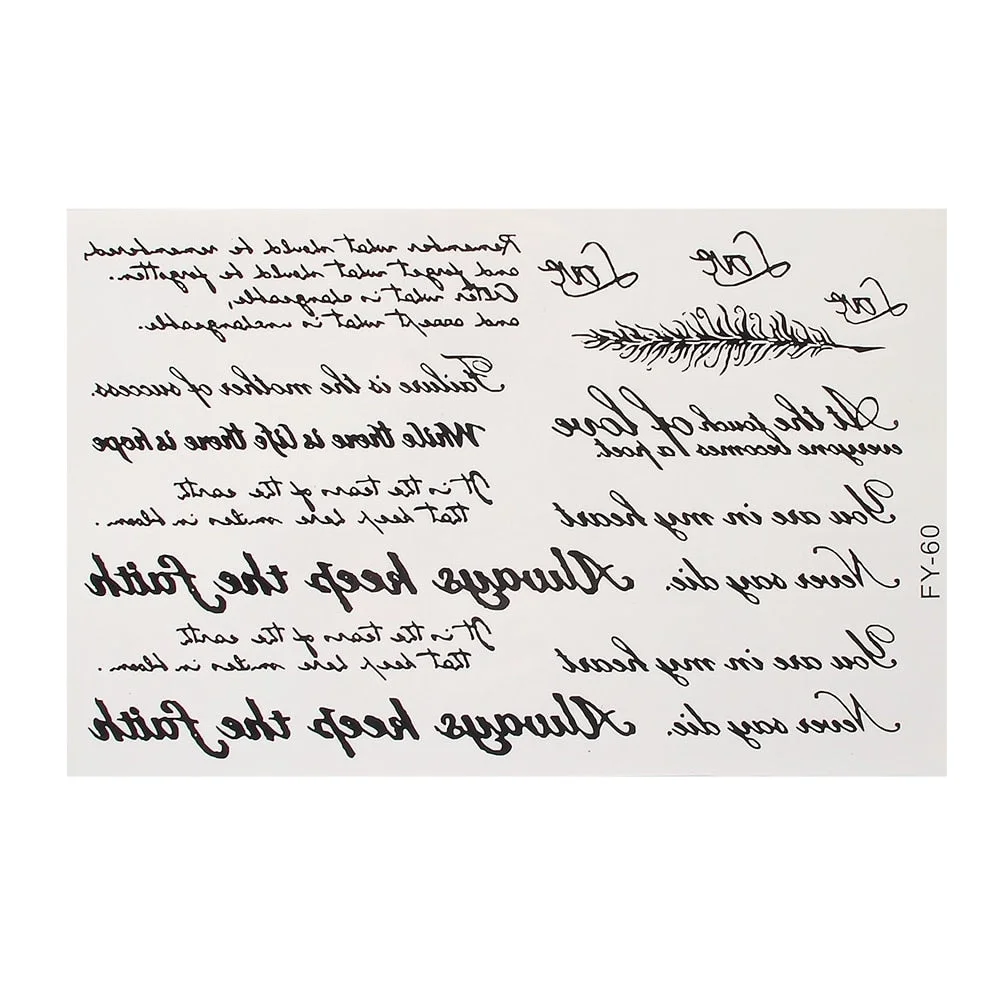 Remember what should be remembered,
and forget what should be forgotten.
Alter what is changeable,
and accept what is unchangeable.
Failure is the mother of success.
While there is life there is hope
It is the tears of the earth
that keep here smiles in bloom.
Always keep the faith
It is the tears of the earth
that keep here smiles in bloom.
Always keep the faith
Love
Love
Love
At the touch of love
everyone becomes a poet.
You are in my heart
Never say die.
You are in my heart
Never say die.
FY-60